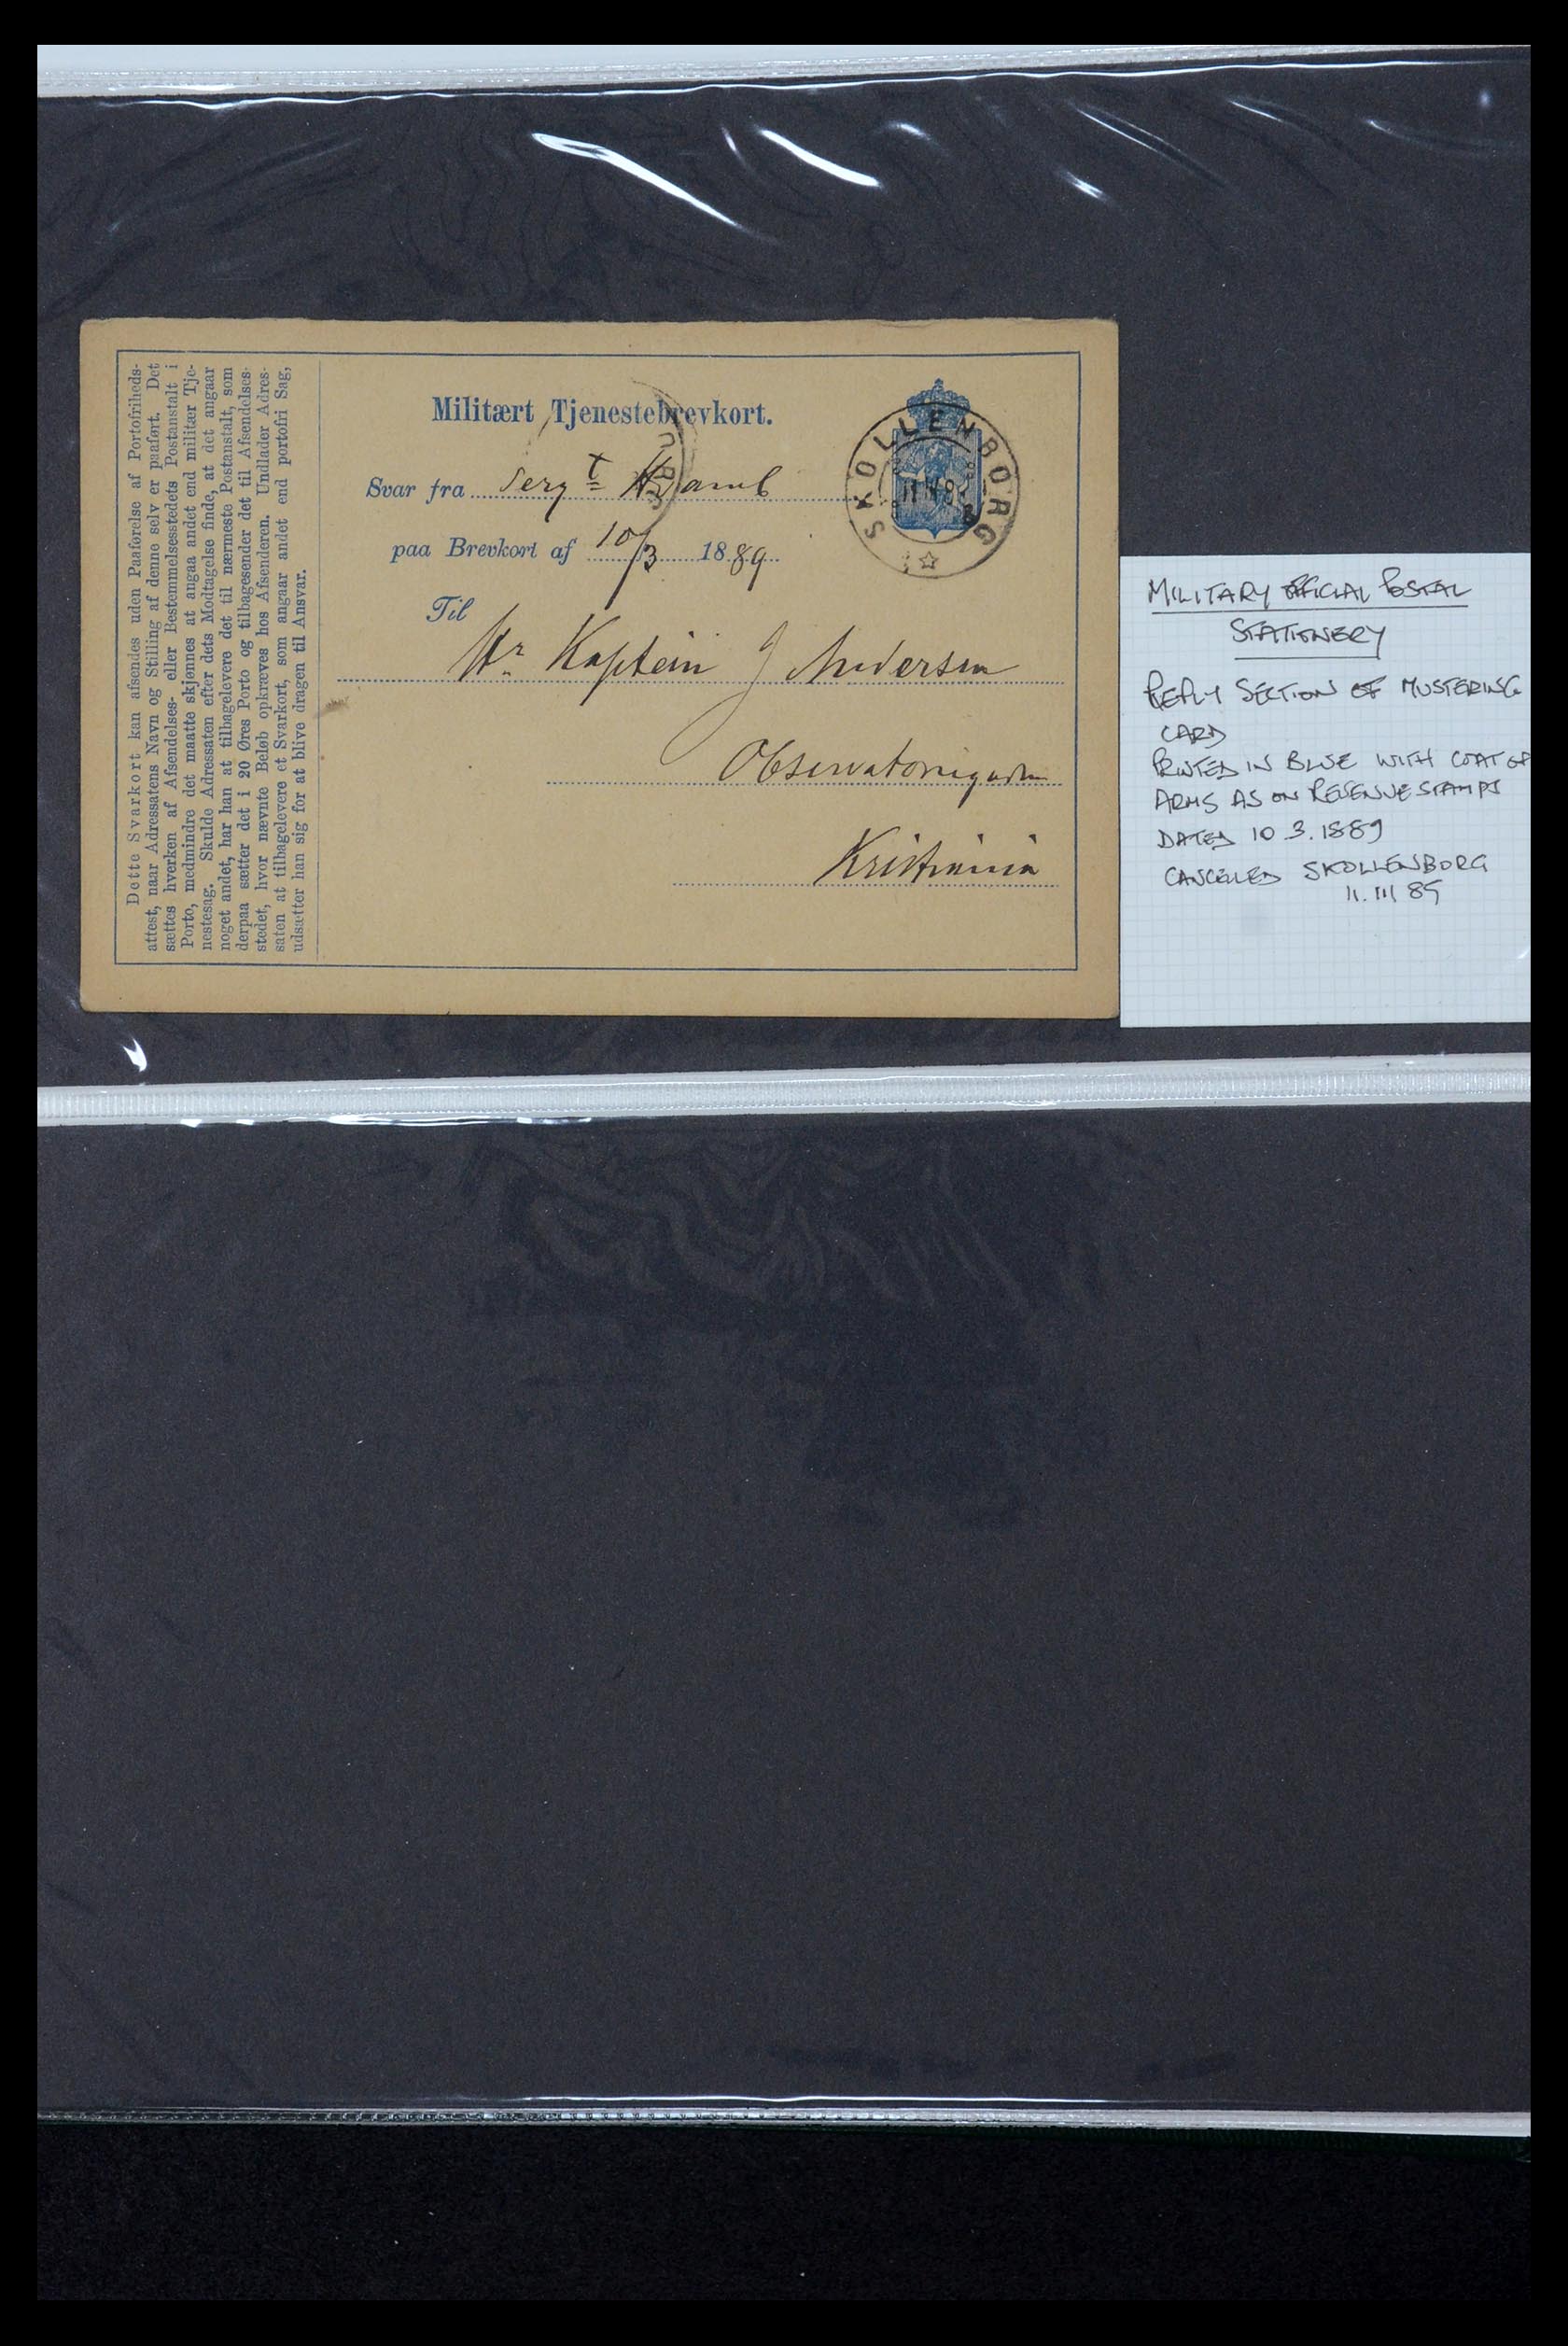 Dette Svarkort kan afsendes uden Paaførelse af Portofriheds-
attest, naar Adressatens Navn og Stilling af denne selv er paaført. Det
sættes hverken af Afsendelses- eller Bestemmelsesstedets Postanstalt i
Porto, medmindre det maatte skjønnes at angaa andet end militær Tje-
nestesag. Skulde Adressaten efter dets Modtagelse finde, at det angaar
noget andet, har han at tilbagelevere det til nærmeste Postanstalt, som
derpaa sætter det i 20 Øres Porto og tilbagesender det til Afsendelses-
stedet, hvor nævnte Beløb opkræves hos Afsenderen. Undlader Adres-
saten at tilbagelevere et Svarkort, som angaar andet end portofri Sag,
udsætter han sig for at blive dragen til Ansvar.
Militært Tjenestebrevkort.
SKOLLENBORG
Svar fra Sergt
paa Brevkort af 10/3 1889
Til
Hr Kaptein J Andersen
Observatoriegaden
Kristiania
MILITARY OFFICIAL POSTAL
STATIONERY
REPLY SECTION OF MUSTERING
CARD
PRINTED IN BLUE WITH COAT OF
ARMS AS ON REVENUE STAMPS
DATED 10 3. 1889
CANCELLED SKOLLENBORG
11. III 89